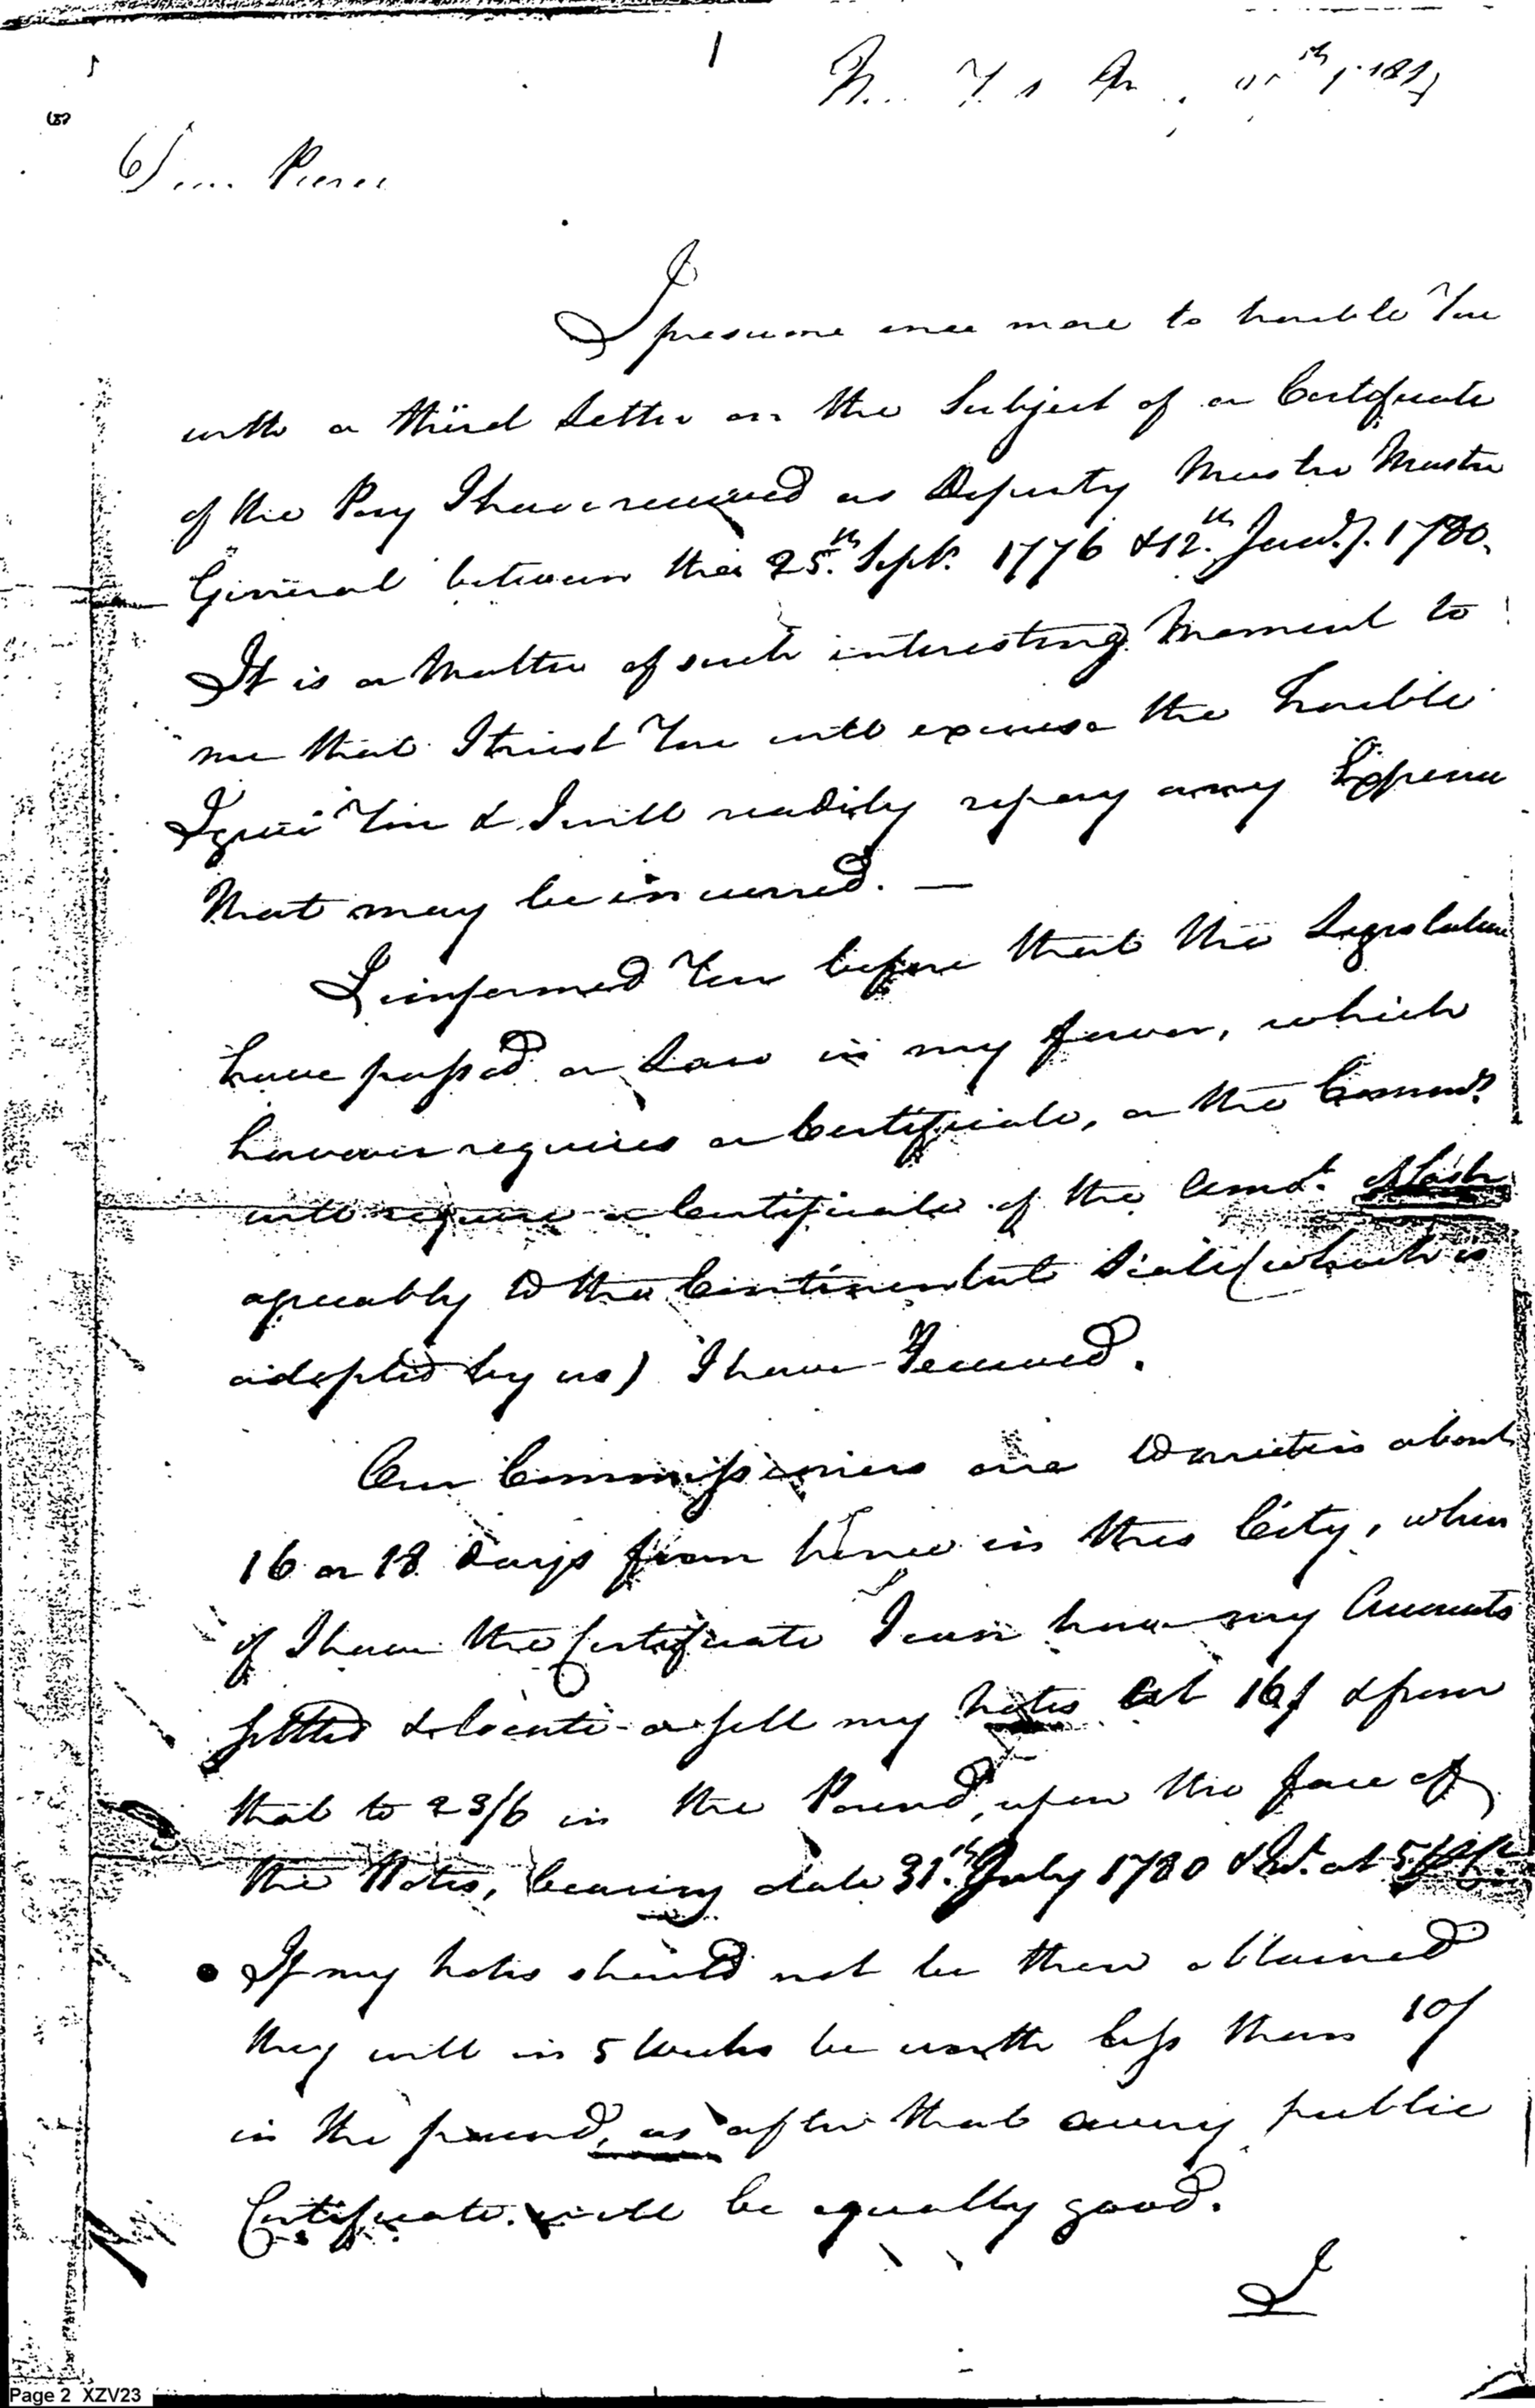 Dear Pierce
I presume once more to trouble You
with a third Letter on the Subject of a Certificate
of the Pay I have received as Deputy Muster Master
General between the 25.th Sept. 1776 & 12.th Jany. 1780.
It is a Matter of such interesting Moment to
me that I trust You will excuse the Trouble
I give You & I will readily repay any Expence
that may be incurred. —
I informed You before that the Legislature
have passed a Law in my favor, which
however requires a Certificate, or the Commrs.
will require a Certificate of the Amot. of Cash
agreeably to the Continental Scale (which is
adopted by us) I have Received.
Our Commissioners are to meet in about
16 or 18 days from hence in this City, when
if I have the Certificate I can have my Accounts
settled & locate or sell my notes at 16/ & from
that to 23/6 in the Pound, upon the face of
the Notes, bearing date 31.st July 1780 & Int. at 5
If my notes should not be then obtained
they will in 5 Weeks be worth less than 10/
in the pound, as after that every public
Certificate will be equally good.
I
Page 2 XZV23